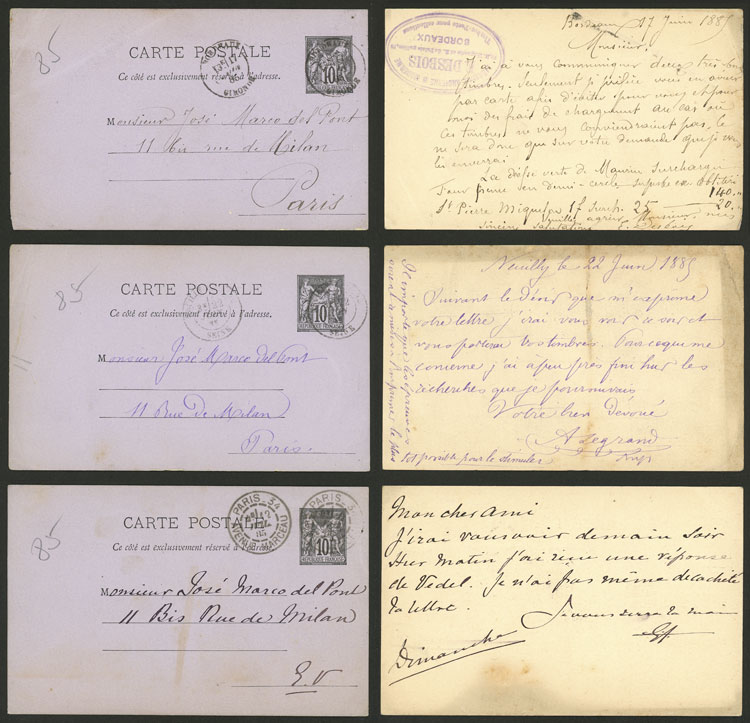 85
CARTE POSTALE
Ce côté est exclusivement réservé à l'adresse.
GIRONDE
REPUBLIQUE FRANÇAISE
10
Monsieur José Marco del Pont
11 bis rue de Milan
Paris
DESBOIS
BORDEAUX
Bordeaux 17 Juin 1885
Monsieur,
J'ai à vous communiquer deux très
timbres. Seulement je préfère vous en aviser
par carte afin d'éviter pour vous et pour
moi des frais de chargement au cas où
ces timbres ne vous conviendraient pas, je
ne
que sur votre demande que je vous
les enverrai
La déesse verte de Maurice Surchargée
Four pence sur demi-cercle superbe ex Oblitéré
140.-
St Pierre Miquelon 1f 25
20.-
Veuillez agréer Monsieur mes
sincères salutations
85
CARTE POSTALE
Ce côté est exclusivement réservé à l'adresse.
SEINE
REPUBLIQUE FRANÇAISE
10
SEINE
Monsieur José Marco del Pont
11 Rue de Milan
Paris.
Neuilly le 22 Juin 1885
Suivant le désir que m'exprime
votre lettre j'irai vous voir ce soir et
vous porterai vos timbres. Pour ce qui me
concerne j'ai à peu près fini hier les
recherches que je poursuivais
Votre bien Dévoué
A Legrand
tôt possible pour le stimuler
85
CARTE POSTALE
Ce côté est exclusivement réservé à l'adresse.
PARIS-34
12
85
AVENUE MARCEAU
PARIS-34
REPUBLIQUE FRANÇAISE
10
Monsieur José Marco del Pont
11 Bis Rue de Milan
E.V
Mon cher Ami
J'irai vous voir demain soir
Hier Matin j'ai reçu une réponse
de Vedel. Je n'ai pas même décacheté
la lettre.
Je vous serre la main
Dimanche